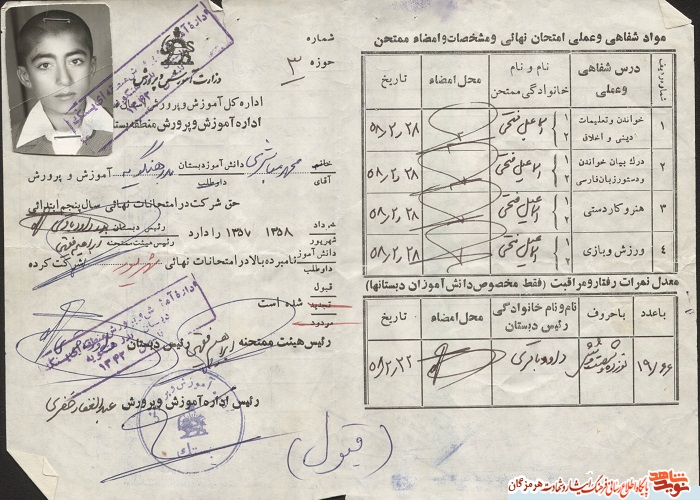 شماره
حوزه ۳
وزارت آموزش و پرورش
اداره کل آموزش و پرورش استان
اداره آموزش و پرورش منطقه بستک
خانم
آقای
دانش آموز دبستان
داوطلب
آموزش و پرورش
حق شرکت در امتحانات نهائی سال پنجم ابتدائی
خرداد
شهریور
۱۳۵۸ ۱۳۵۷ را دارد
رئیس دبستان
رئیس هیئت ممتحنه
دانش آموز
داوطلب
نامبرده بالا در امتحانات نهائی شهریور شرکت کرده
قبول
تجدید شده است
مردود
رئیس هیئت ممتحنه ابراهیم فقیهی رئیس دبستان
رئیس اداره آموزش و پرورش عبدالغفار جعفری
(قبول)
مواد شفاهی و عملی امتحان نهائی و مشخصات و امضاء ممتحن
شماره ردیف
درس شفاهی وعملی
نام و نام خانوادگی ممتحن
محل امضاء
تاریخ
۱ خواندن و تعلیمات دینی و اخلاق ۱ ۲ اسماعیل فتحی ۵۸/۲/۲۸
۲ درك بیان خواندن ودستور زبان فارسی ۱ ۲ اسماعیل فتحی ۵۸/۲/۲۸
۳ هنر و کاردستی ۱ ۲ اسماعیل فتحی ۵۸/۲/۲۸
۴ ورزش و بازی ۱ ۲ اسماعیل فتحی ۵۸/۲/۲۸
معدل نمرات رفتار و مراقبت (فقط مخصوص دانش آموزان دبستانها)
باعدد
باحروف
نام و نام خانوادگی رئیس دبستان
محل امضاء
تاریخ
۱۹/۶۶ نوزده شصت و شش داود باقری ۵۸/۲/۲۲
شاهد
نوید
پایگاه اطلاع رسانی فرهنگ ایثار و شهادت هرمزگان